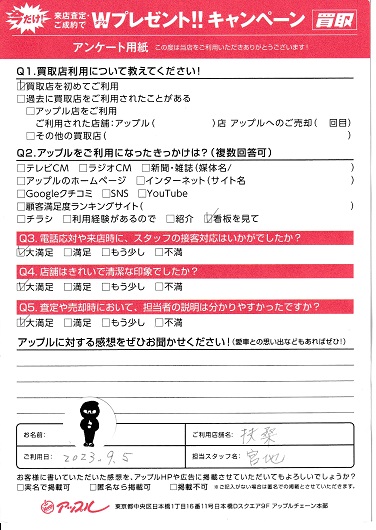 だけ 来店査定・ご成約で Wプレゼント!!キャンペーン 買取
アンケート用紙 この度は当店をご利用いただきありがとうございます!
Q1.買取店利用について教えてください!
☑買取店を初めてご利用
□過去に買取店をご利用されたことがある
□アップル店をご利用
ご利用された店舗:アップル( )店 アップルへのご売却( 回目)
□その他の買取店( )
Q2.アップルをご利用になったきっかけは?(複数回答可)
□テレビCM □ラジオCM □新聞・雑誌(媒体名/ )
□アップルのホームページ □インターネット(サイト名 )
□Googleクチコミ □SNS □YouTube
□顧客満足度ランキングサイト( )
□チラシ □利用経験があるので □紹介 ☑看板を見て
Q3.電話応対や来店時に、スタッフの接客対応はいかがでしたか?
☑大満足 □満足 □もう少し □不満
Q4.店舗はきれいで清潔な印象でしたか?
☑大満足 □満足 □もう少し □不満
Q5.査定や売却時において、担当者の説明は分かりやすかったですか?
☑大満足 □満足 □もう少し □不満
アップルに対する感想をぜひお聞かせください!(愛車との思い出などもあればぜひ!)
お名前: ご利用店舗名: 扶桑
ご利用日: 2023.9.5 担当スタッフ名: 宮地
お客様に書いていただいた感想を、アップルHPや広告に掲載させていただいてもよろしいでしょうか?
□実名で掲載可 □匿名なら掲載可 □掲載不可 ※ご記入がない場合は匿名での掲載とさせていただきます。
アップル 東京都中央区日本橋1丁目16番11号日本橋Dスクエア9F アップルチェーン本部